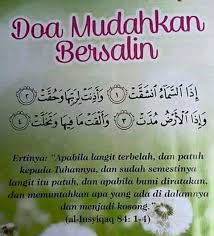 Doa Mudahkan
Bersalin
إِذَا السَّمَاءُ انْشَقَّتْ ١ وَأَذِنَتْ لِرَبِّهَا وَحُقَّتْ ٢
وَإِذَا الْأَرْضُ مُدَّتْ ٣ وَأَلْقَتْ مَا فِيهَا وَتَخَلَّتْ ٤
Ertinya: "Apabila langit terbelah, dan patuh
kepada Tuhannya, dan sudah semestinya
langit itu patuh, dan apabila bumi diratakan,
dan memuntahkan apa yang ada di dalamnya
dan menjadi kosong."
(al-Insyiqaq 84: 1-4)